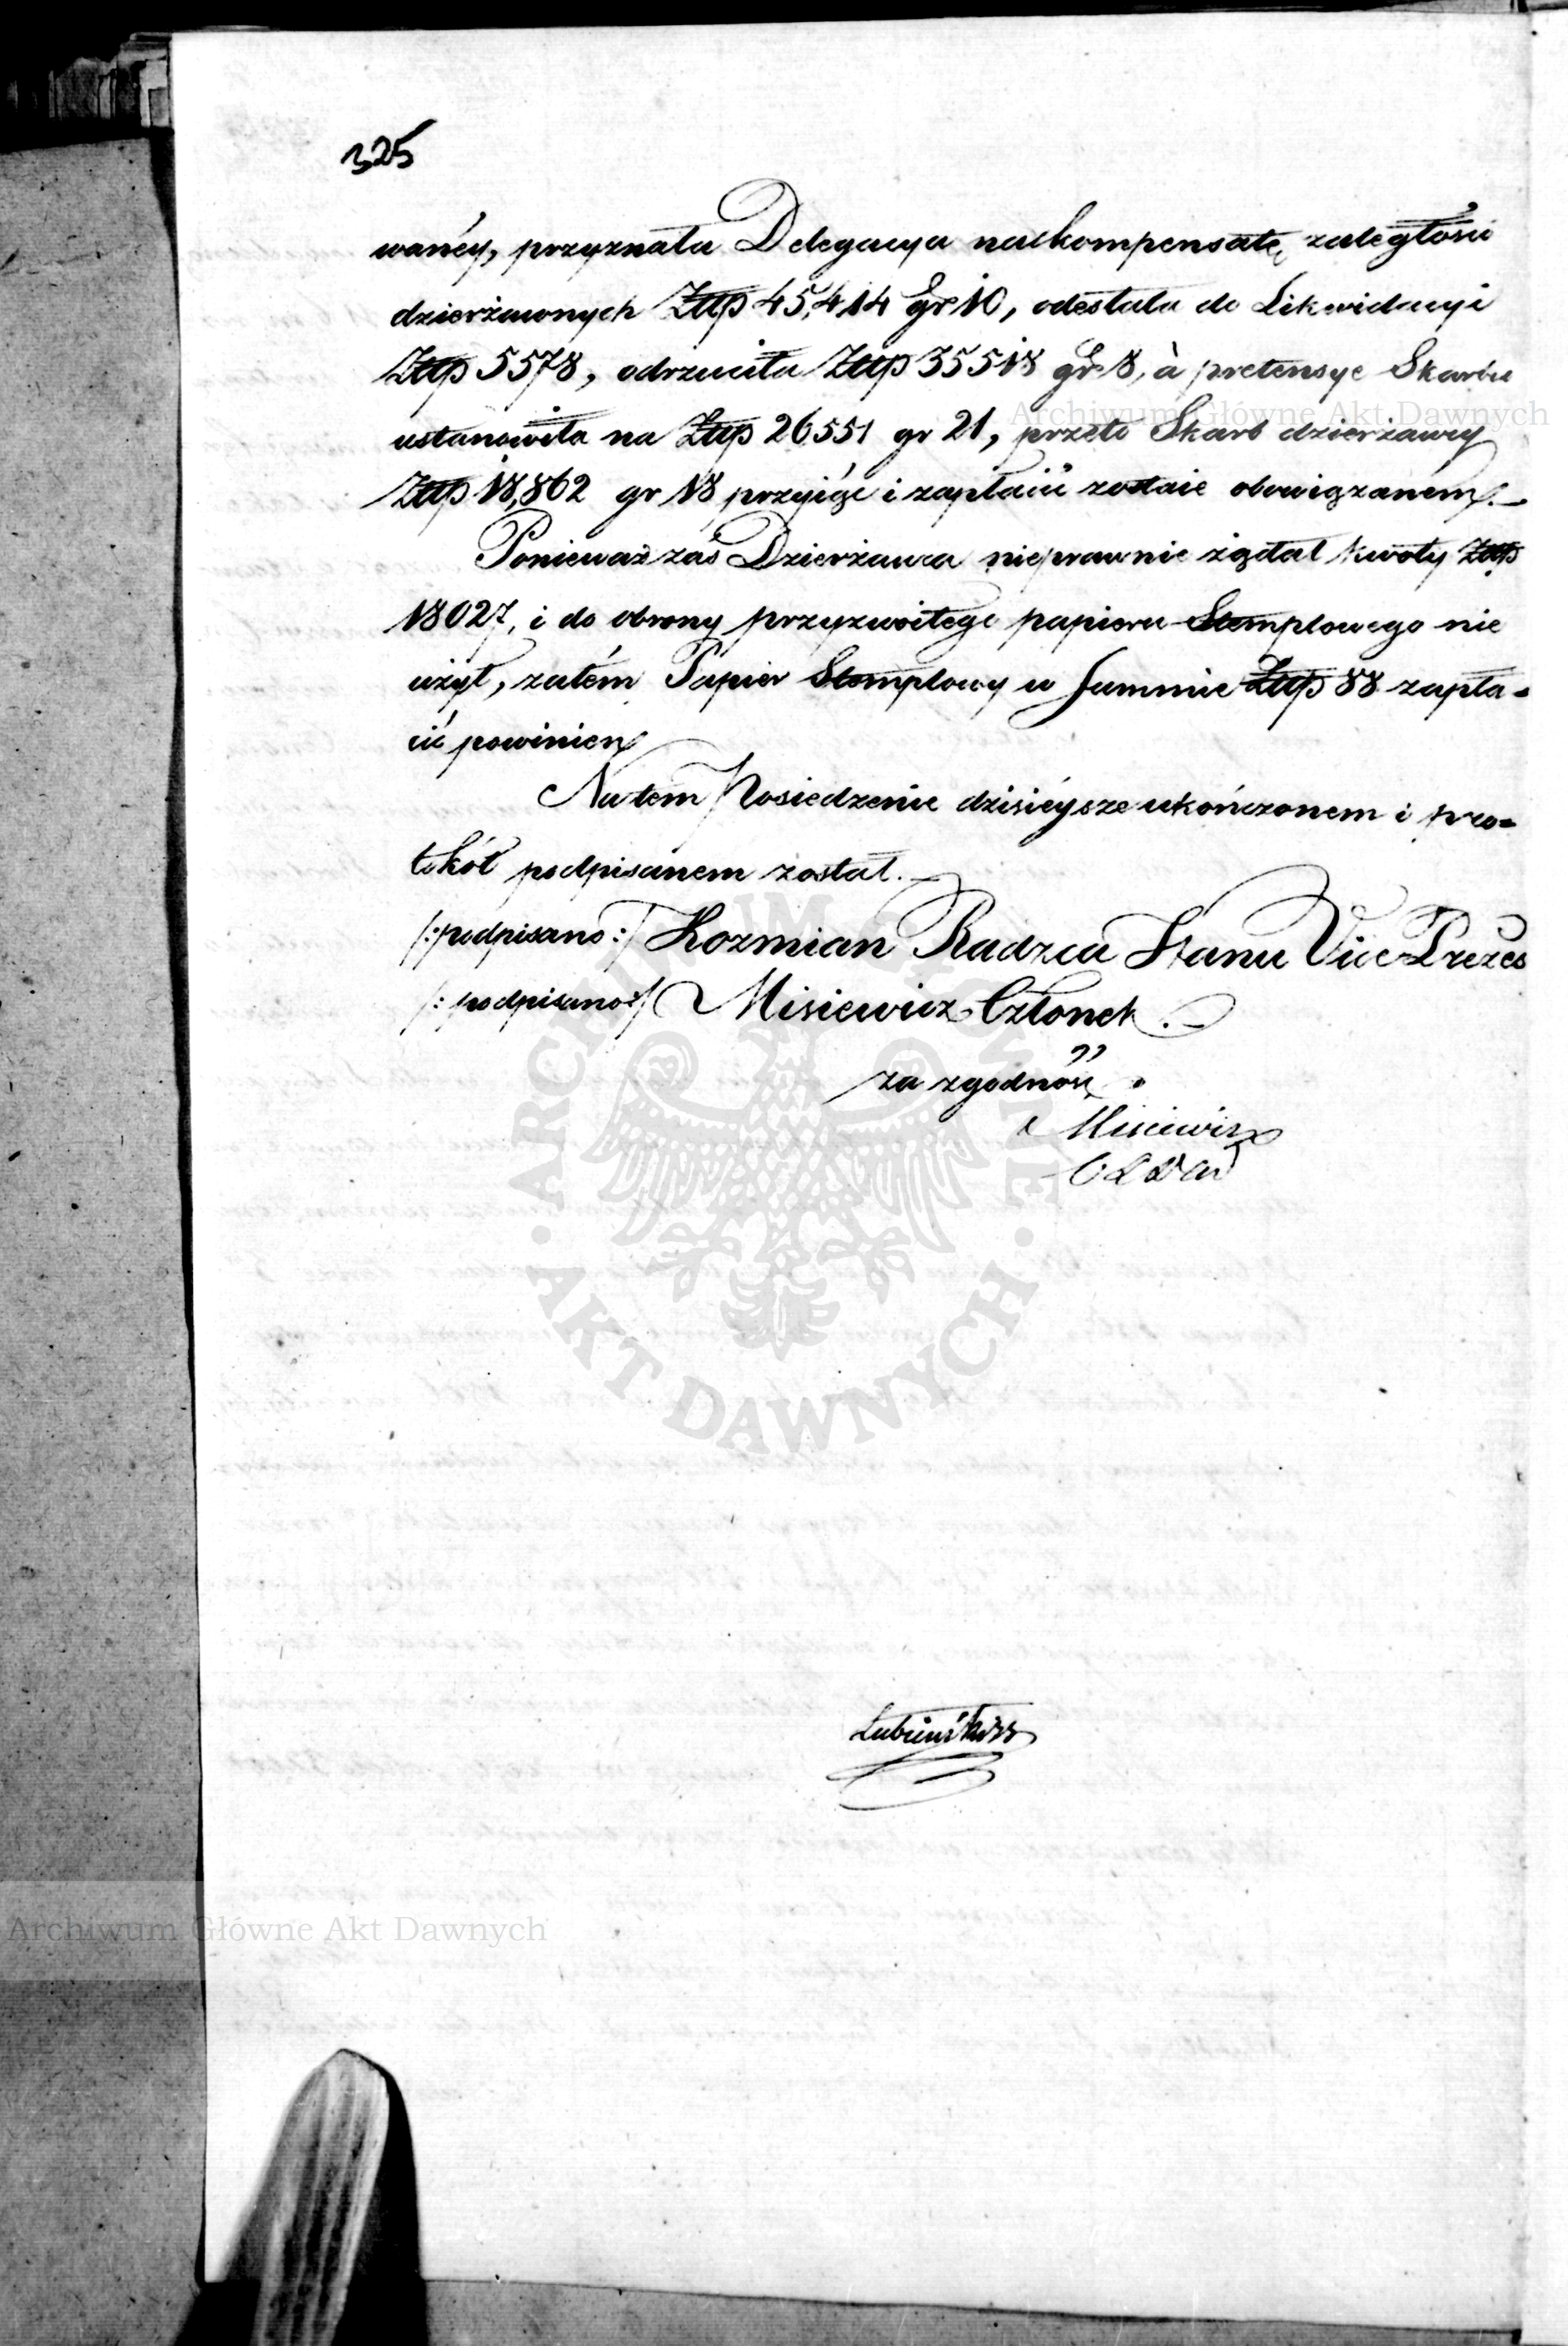 325
wanéy, przyznała Delegacya na skompensatę zaległości
dzierżawnych Złłp 45,414 gr 10, odesłała do Likwidacyi
Złłp 5578, odrzuciła Złłp 35518 gr 8, à pretensye Skarbu
ustanowiła na Złłp 26551 gr 21, przeto Skarb dzierżawcy
Złłp 18,862 gr 18 przyiąć i zapłacić zostaie obowiązanem.
Ponieważ zaś Dzierżawca nieprawnie żądał kwoty Złłp
18027, i do obrony przyzwoitego papieru Stemplowego nie
użył, zatém Papier Stemplowy w Summie Złłp 88 zapła=
cić powinien
Na tem Posiedzenie dzisiéysze ukończonem i pro=
tokół podpisanem został.
/:podpisano:/ Kozmian Radzca Stanu Vice Prezes
/:podpisano:/ Misiewicz Członek.
za zgodność
Misiewicz
Lubieński
Archiwum Główne Akt Dawnych
Archiwum Główne Akt Dawnych
ARCHIWUM GŁÓWNE · AKT DAWNYCH ·